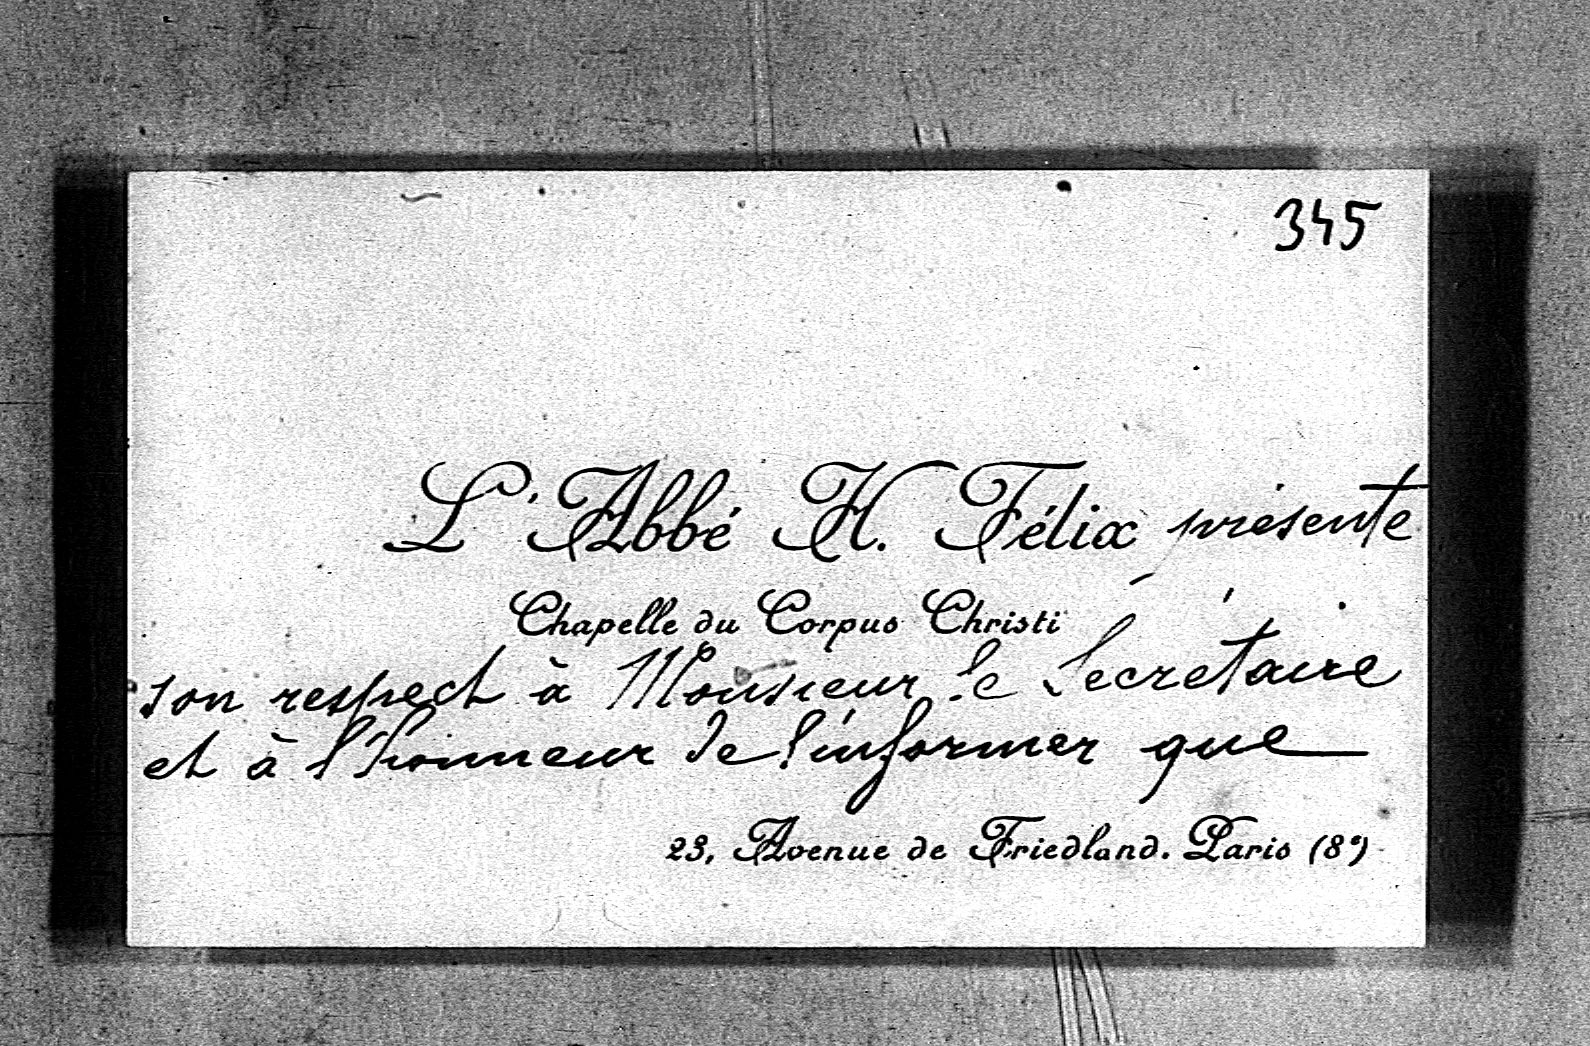 345
L'Abbé H. Félix présente
Chapelle du Corpus Christi
son respect à Monsieur le Secrétaire
et à l'honneur de l'informer que
23, Avenue de Friedland. Paris (8e)